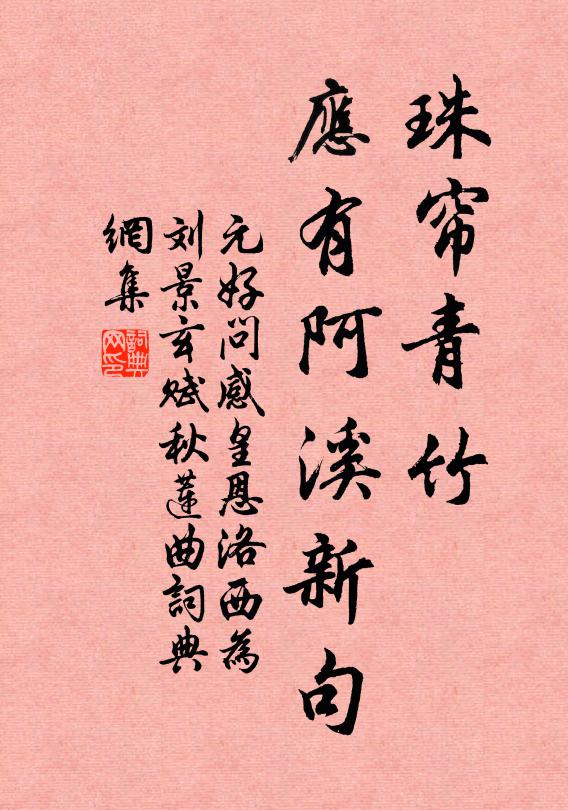 珠帘青竹
應有阿溪新句
元好问感皇恩洛西為
刘景玄赋秋蓮曲詞典
網集
詞典网印